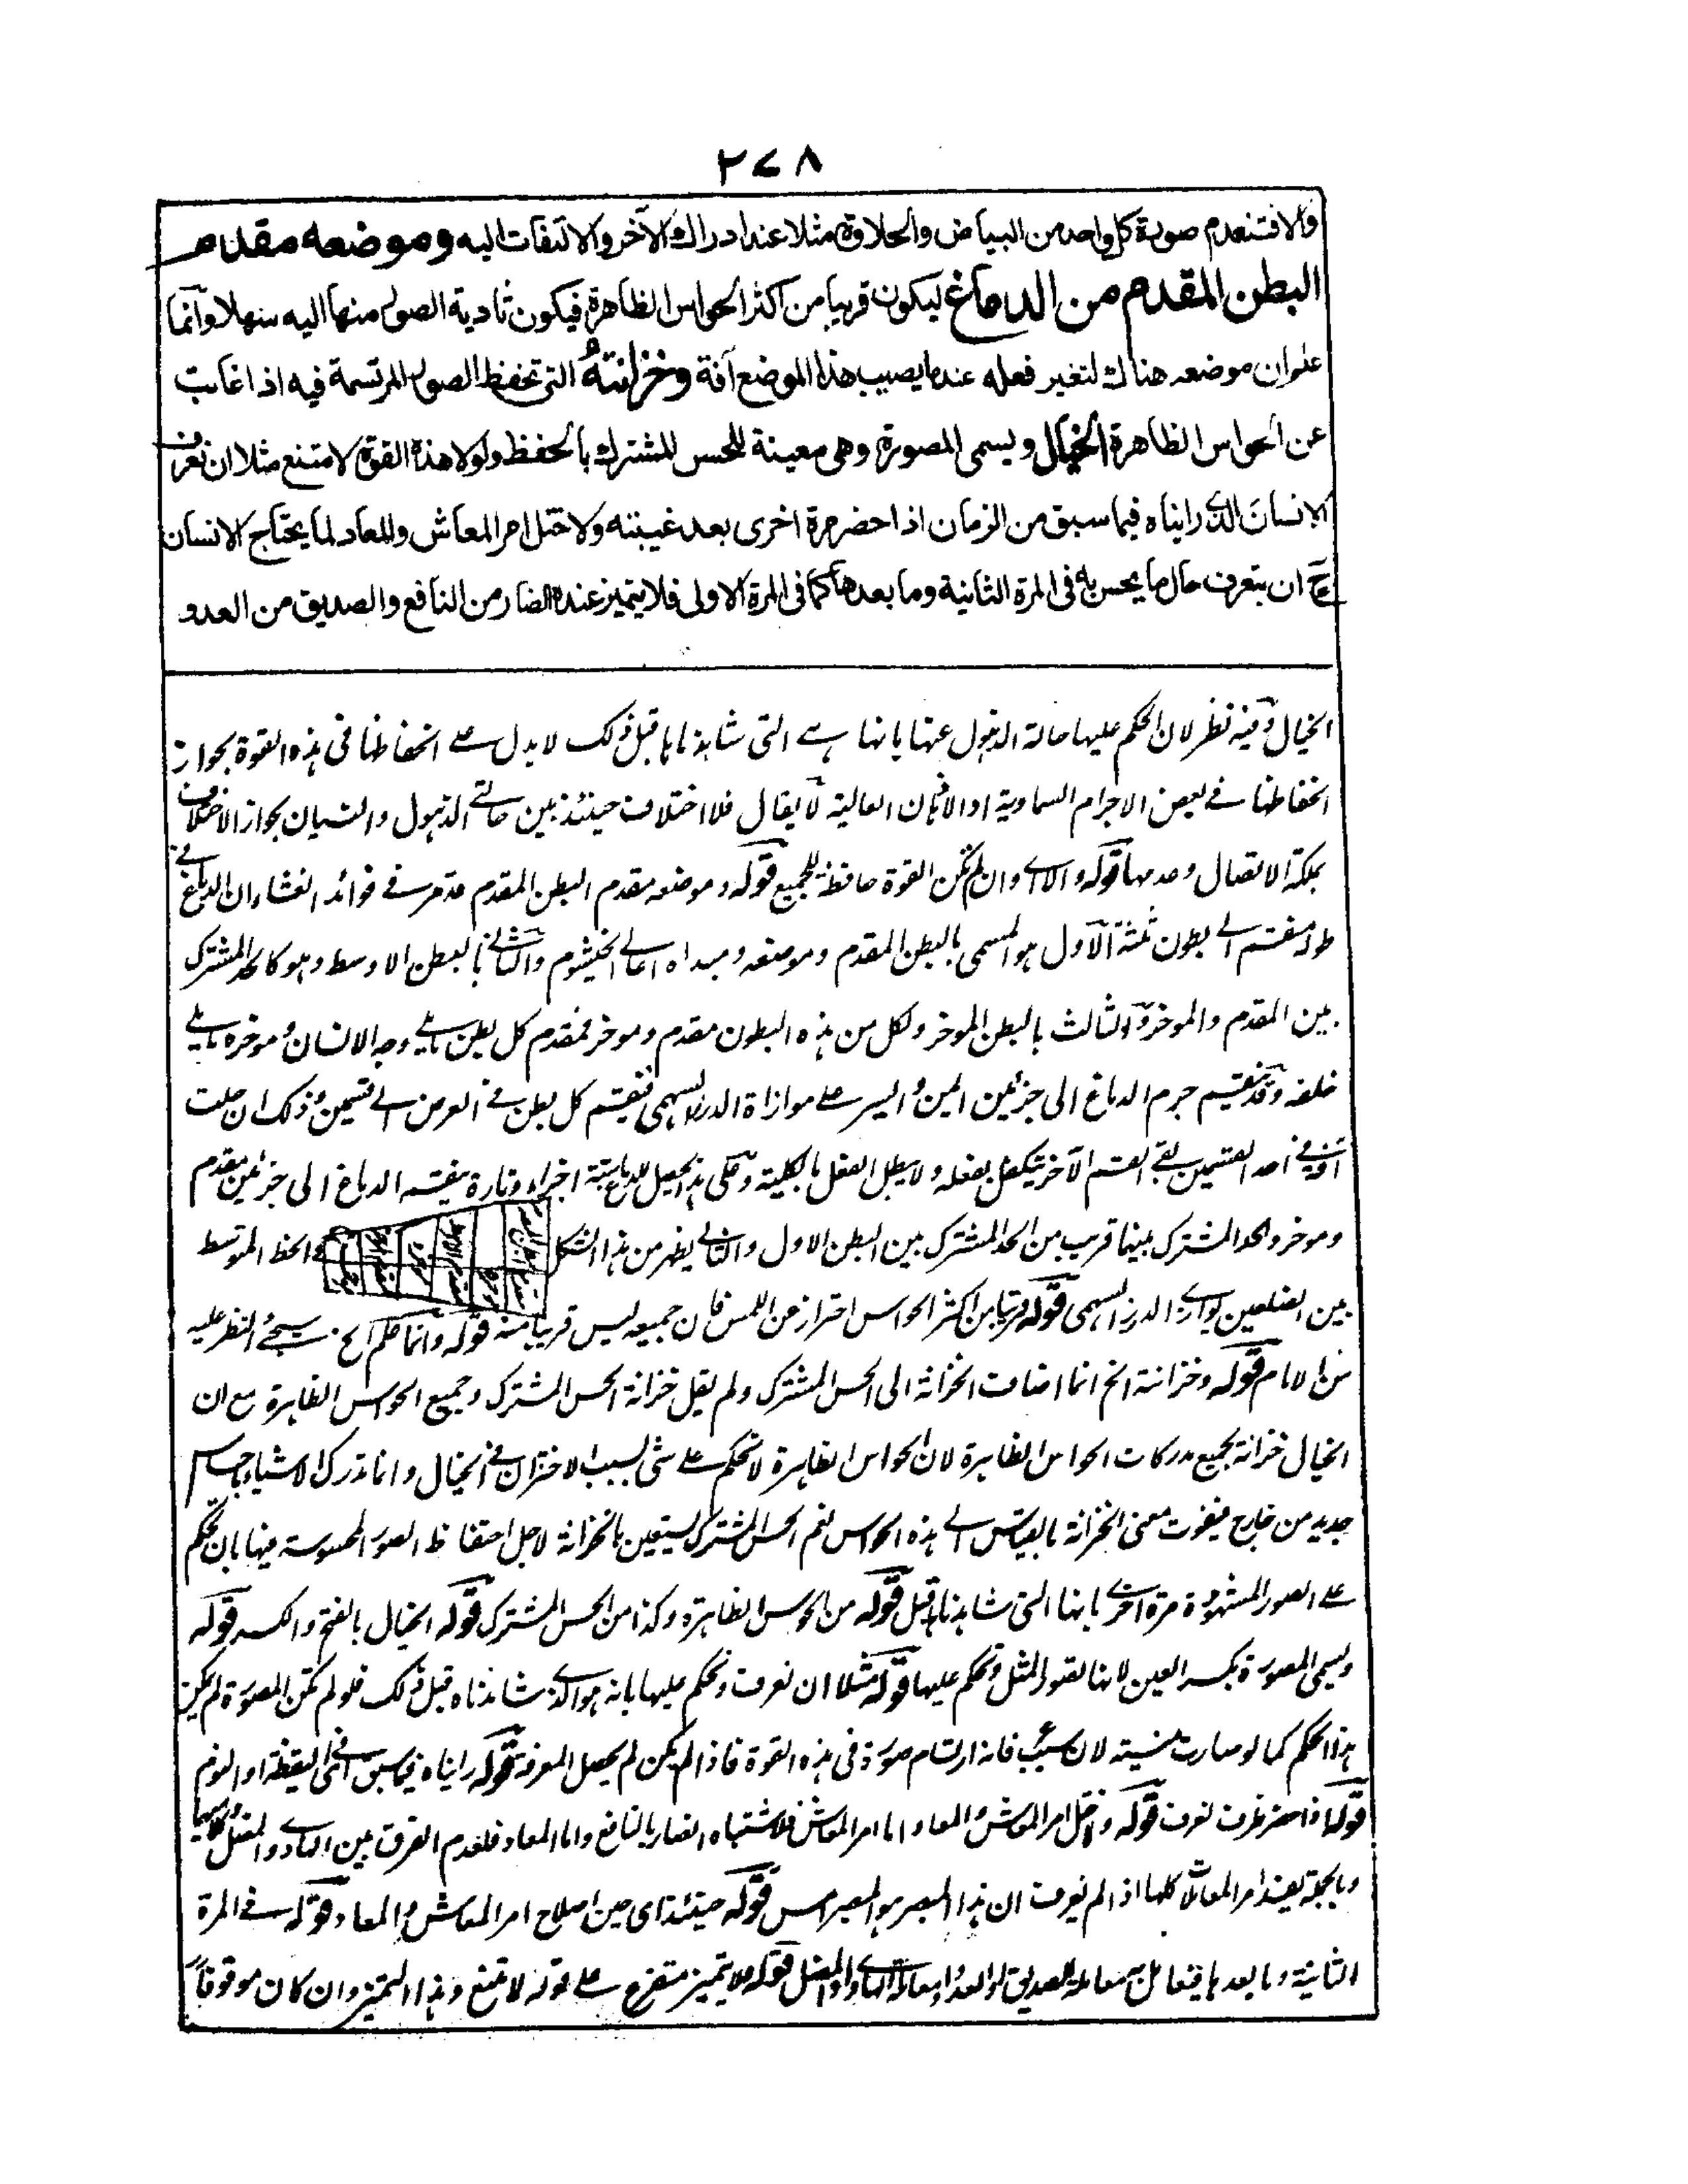 ٢٧٨
والا فتنعدم صورة كل واحد من البياض والحلاوة مثلا عند ادراك الآخر والالتفات اليه وموضعه مقدم
البطن المقدم من الدماغ ليكون قريبا من اكثر الحواس الظاهرة فيكون تادية الصور منها اليه سهلا وانما
علم ان موضعه هناك لتغير فعله عندما يصيب هذا الموضع آفة وخزانته التى تحفظ الصور المرتسمة فيه اذا غابت
عن الحواس الظاهرة الخيال ويسمى المصورة وهى معينة للحس المشترك بالحفظ ولولا هذه القوة لامتنع مثلا ان نعرف
الانسان الذى رايناه فيما سبق من الزمان اذا حضر مرة اخرى بعد غيبته ولاختل امر المعاش والمعاد لما يحتاج الانسان
ح ان يتعرف حال ما يحس به فى المرة الثانية وما بعدها كما فى المرة الاولى فلا يتميز عنده الضار من النافع والصديق من العدو
الخيال وفيه نظر لان الحكم عليها حالة الذهول عنها بانها هى التى شاهدناها قبل ذلك لا يدل على انحفاظها فى هذه القوة لجواز
انحفاظها فى بعض الاجرام السماوية او الاذهان العالية لا يقال فلا اختلاف حينئذ بين حالتى الذهول والنسيان لجواز الاختلاف
بملكة الاتصال وعدمها قوله والا اى وان لم تكن القوة حافظة للجميع قوله وموضعه مقدم البطن المقدم قد مر فى فوائد الغشاء ان الدماغ فى
طوله منقسم الى بطون ثلثة الاول هو المسمى بالبطن المقدم وموضعه ومبداه اعالى الخيشوم والثانى بالبطن الاوسط وهو كالحد المشترك
بين المقدم والموخر والثالث بالبطن الموخر ولكل من هذه البطون مقدم وموخر فمقدم كل بطن ما يلى وجه الانسان وموخره ما يلى
خلفه وقد ينقسم جرم الدماغ الى جزئين ايمن وايسر على موازاة الدرز السهمى فينقسم كل بطن فى العرض الى قسمين وذلك ان حلت
آفة فى احد القسمين بقى القسم الآخر يتكفل بفعله ولا يبطل الفعل بالكلية وعلى هذا يحصل للدماغ ستة اجزاء وتارة ينقسم الدماغ الى جزئين مقدم
وموخر والحد المشترك بينهما قريب من الحد المشترك بين البطن الاول والثانى يظهر من هذا الشكل والخط المتوسط
بين الضلعين يوازى الدرز السهمى قوله قريبا من اكثر الحواس احتراز عن اللمس فان جميعه ليس قريبا منه قوله وانما علم الخ سيجئ النظر عليه
من الامام قوله وخزانته الخ انما اضاف الخزانة الى الحس المشترك ولم يقل خزانة الحس المشترك وجميع الحواس الظاهرة مع ان
الخيال خزانة لجميع مدركات الحواس الظاهرة لان الحواس الظاهرة لا تحكم على شئ بسبب الاختزان فى الخيال وانما تدرك الاشياء باحساس
جديد من خارج فيفوت معنى الخزانة بالقياس الى هذه الحواس نعم الحس المشترك يستعين بالخزانة لاجل احتفاظ الصور المحسوسة فيها بان تحكم
على الصور المشهودة مرة اخرى بانها التى شاهدناها قبل قوله من الحواس الظاهرة وكذا من الحس المشترك قوله الخيال بالفتح والكسر قوله
ويسمى المصورة بكسر العين لانها تصور المثل وتحكم عليها قوله مثلا ان نعرف ونحكم عليها بانه هو الذى شاهدناه قبل ذلك فلو لم تكن المصورة لم يكن
هذا الحكم كما لو صارت منسية لان سبب فانه ارتسام صورة فى هذه القوة فاذا لم يكن لم يحصل المعرفة قوله رايناه فيما سبق اى فى اليقظة او النوم
قوله اذا حضر ظرف نعرف قوله ولاختل امر المعاش والمعاد اما امر المعاش فلاشتباه الضار بالنافع واما المعاد فلعدم الفرق بين الهادى والمضل
وبالجملة يفسد امر المعاملات كلها اذ لم نعرف ان هذا المبصر هو المبصر امس قوله حينئذ اى حين اصلاح امر المعاش والمعاد قوله فى المرة
الثانية وما بعدها فيتعامل به معاملة الصديق او العدو او معاملة الهادى والمضل قوله فلا يتميز متفرع على قوله لامتنع وهذا التميز وان كان موقوفا